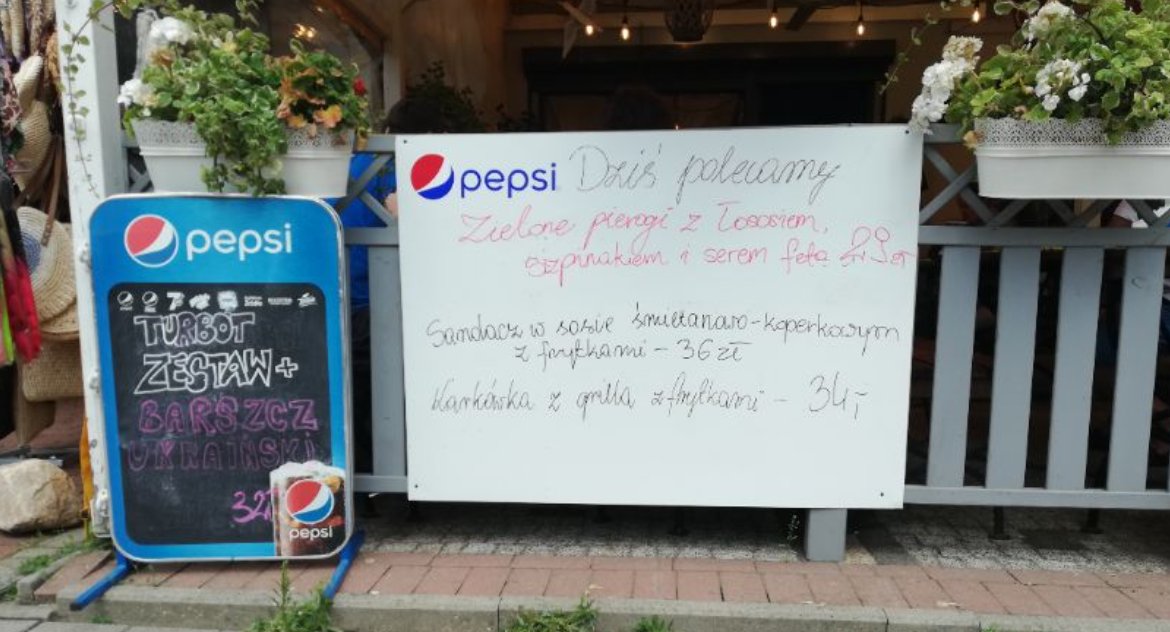 pepsi
TURBOT
ZESTAW+
BARSZCZ
UKRAIŃSKI
32
pepsi
pepsi Dziś polecamy
Zielone pierogi z łososiem,
szpinakiem i serem feta 29 zł
Sandacz w sosie śmietanowo-koperkowym
z frytkami - 36 zł
Karkówka z grilla z frytkami - 34,-